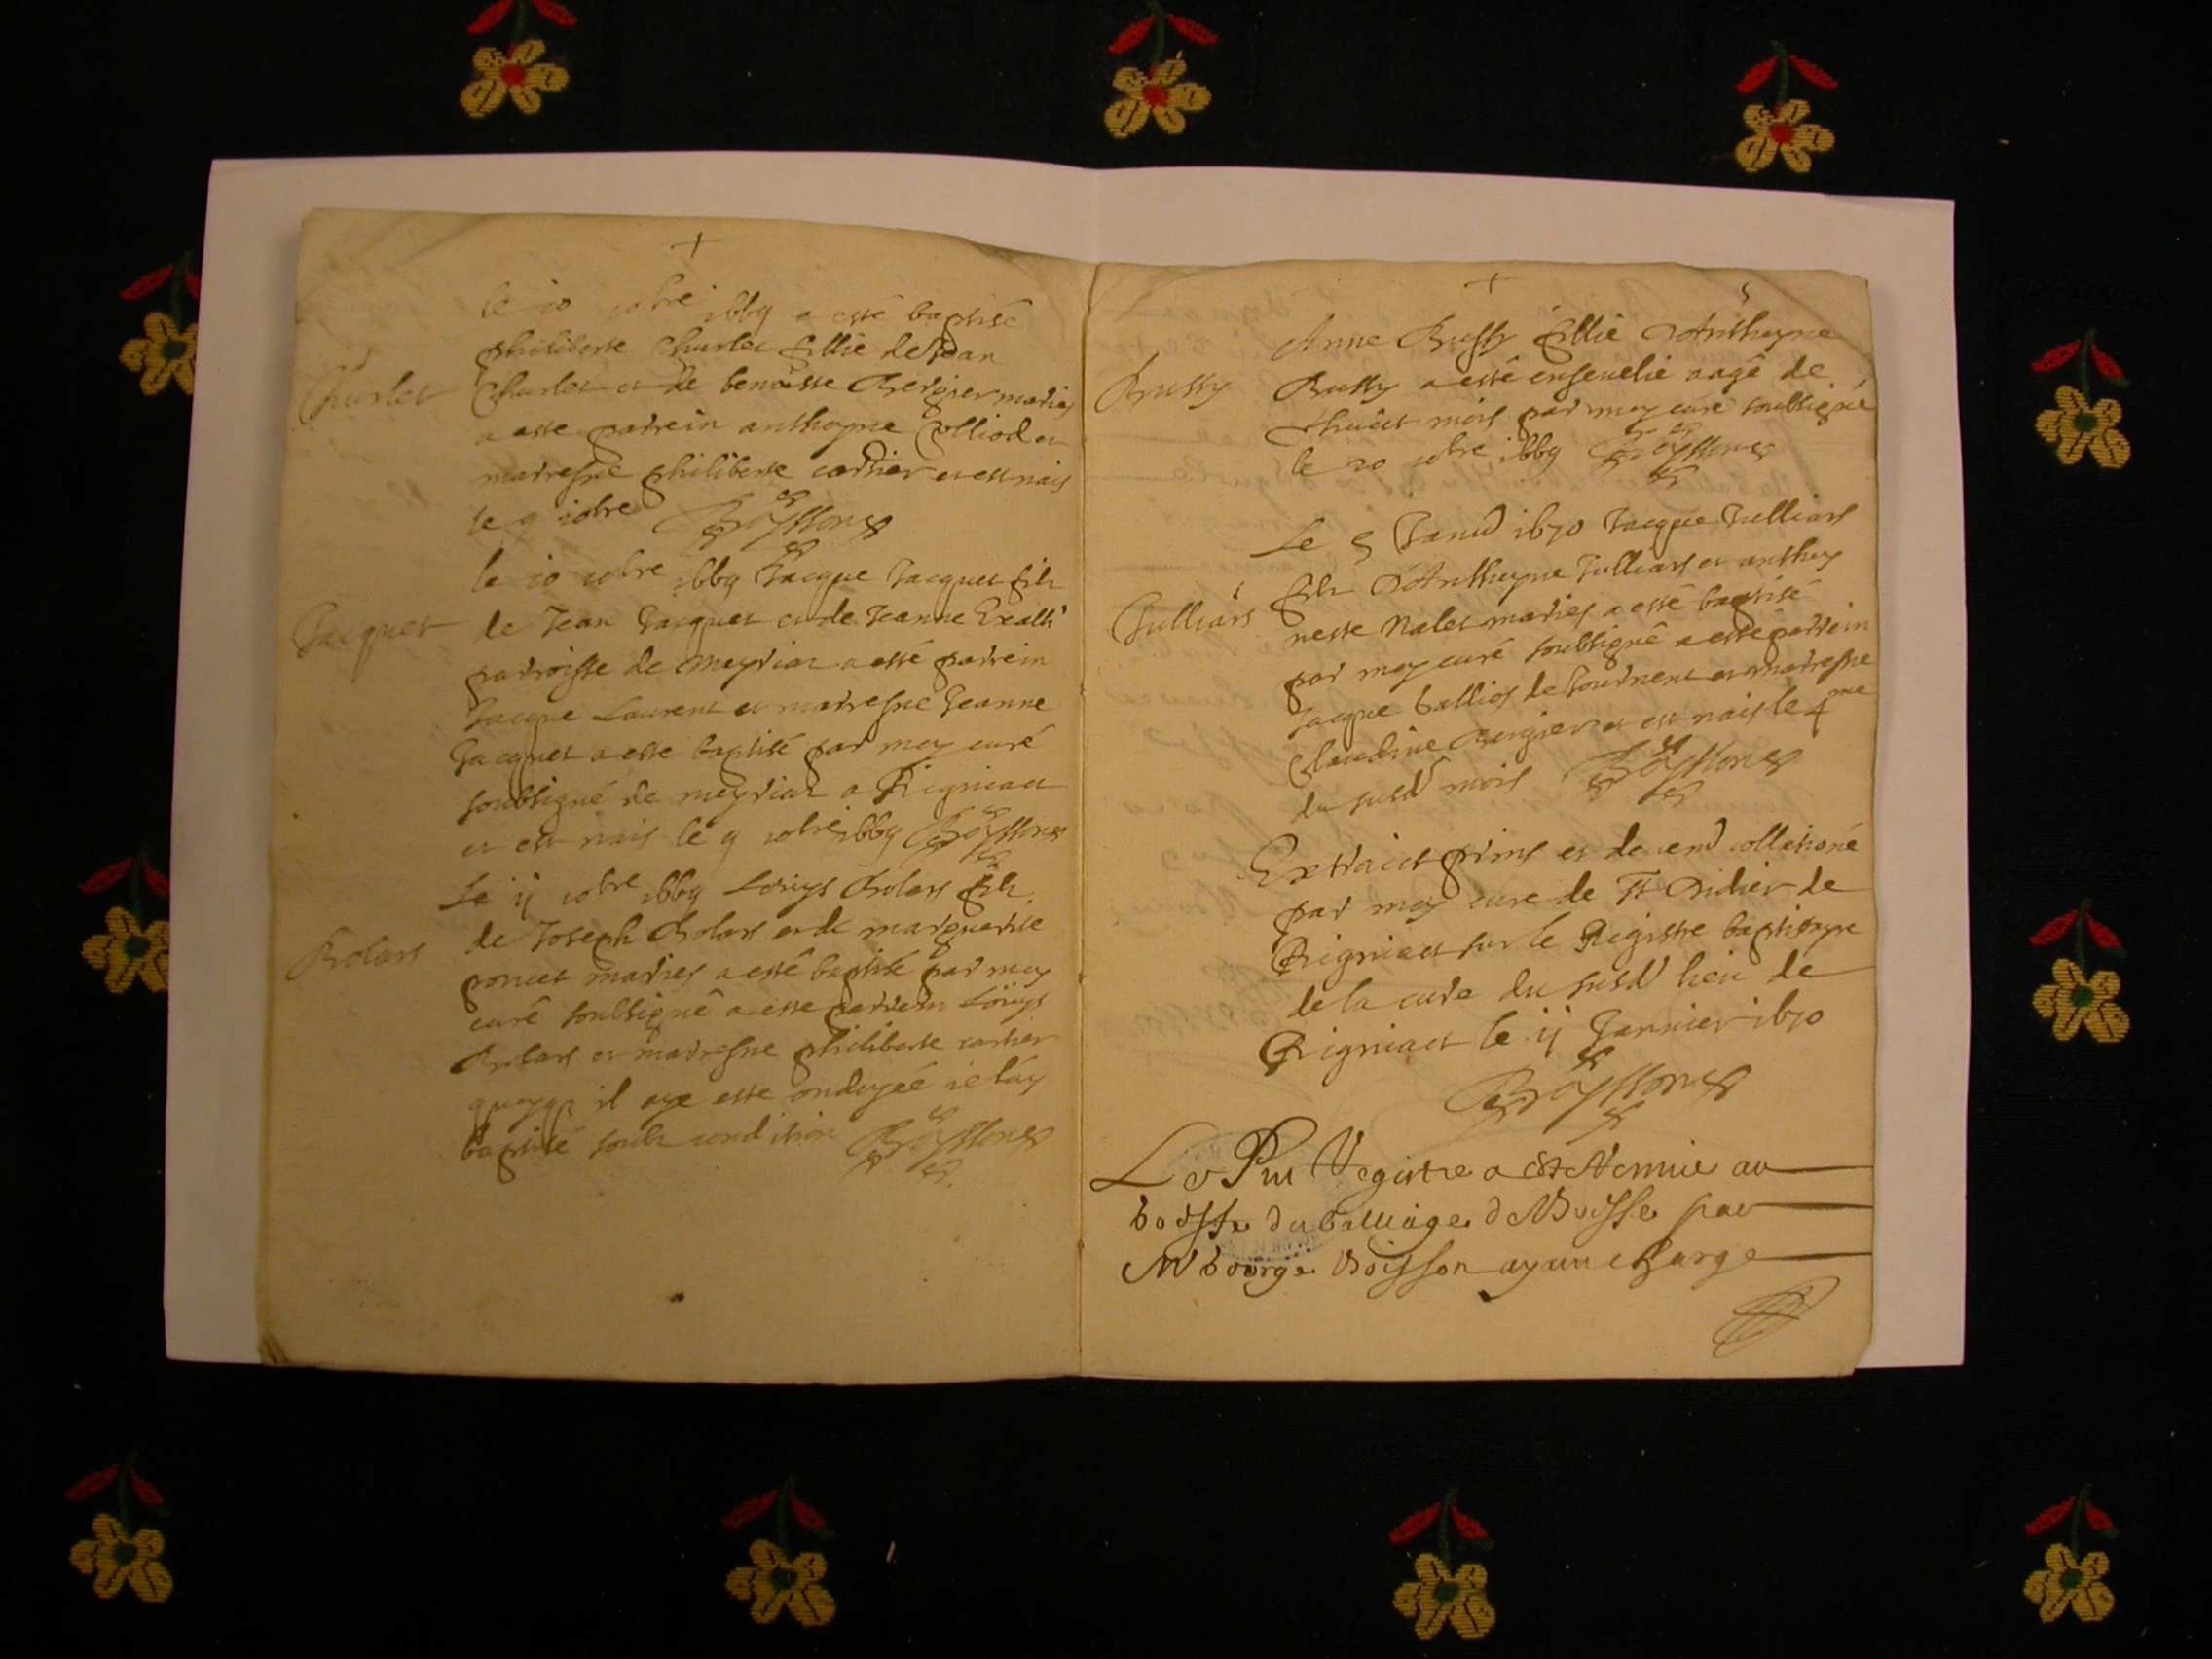 +
le 10 xbre 1669 a esté baptisé
philiberte Churlet fillie de Jean
Churlet
Churlet et de benoiste Bergier mariés
a esté parrein anthoyne Colliod et
marresne philiberte cartier et est nais
le 9 xbre Boÿsson
le 10 xbre 1669 Jacque Jacquet fils
Jacquet
de Jean Jacquet et de Jeanne
parroisse de meyriat a esté parrein
Jacque Laurent et marresne Jeanne
Jacquet a esté baptisé par moy curé
soubsigné de meyriat a Rigniact
et est nais le 9 xbre 1669 Boÿsson
Le 11 xbre 1669 Loüys Rolart fils
Rolart
de Joseph Rolart et de marguerite
poncet mariés a esté baptisé par moy
curé soubsigné a esté parrein Loüys
Rolart et marresne philiberte cartier
quoyq il aye esté ondoyéé ie l'ay
baptisé soubs condition Boÿsson
+
5
Anne Bussy fillie d'Anthoyne
Bussy
Bussy a esté enseuelie aagé de
huict mois par moy curé soubsigné
le 20 xbre 1669 Boÿsson
Le 5 Janvd 1670 Jacque Julliart
fils d'Anthoyne Julliart et anthoy
Julliart
nette Nalet mariés a esté baptisé
par moy curé soubsigné a esté parrein
Jacque ballio de et marresne
Claudine Bergier et est nais le 4me
du susd mois Boÿsson
Extraict prins et deuemd collationé
par moy curé de St Didier de
Rigniact sur le Registre baptistayre
de la cure du susd lieu de
Rigniact le 11 Januier 1670
Boÿsson
Le Pnt Registre a esté Remis au
Greffe du balliage de Bresse par
Mr boisson ayant charge